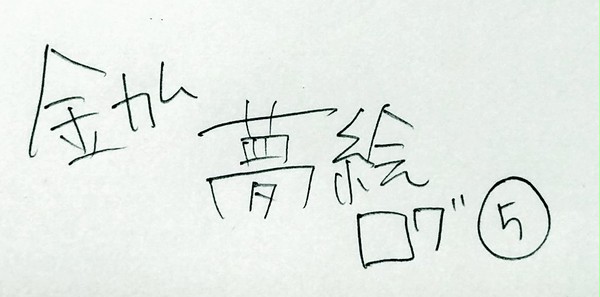 金カム
夢絵
ログ⑤